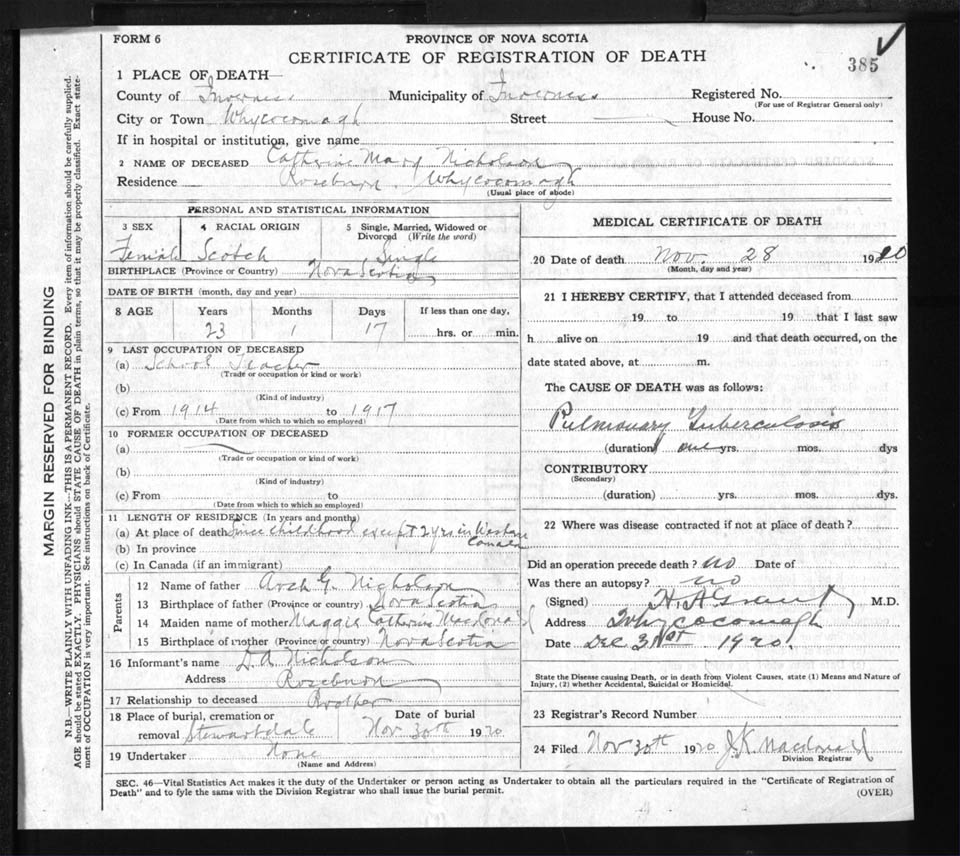 FORM 6
PROVINCE OF NOVA SCOTIA
CERTIFICATE OF REGISTRATION OF DEATH
385
1 PLACE OF DEATH—
County of Inverness Municipality of Inverness Registered No.
(For use of Registrar General only)
City or Town Whycocomagh Street House No.
If in hospital or institution, give name
2 NAME OF DECEASED Catherine Mary Nicholson
Residence Roseburn. Whycocomagh
(Usual place of abode)
PERSONAL AND STATISTICAL INFORMATION
3 SEX 4 RACIAL ORIGIN 5 Single, Married, Widowed or
Divorced (Write the word)
Female Scotch Single
BIRTHPLACE (Province or Country) Nova Scotia
DATE OF BIRTH (month, day and year)
8 AGE Years Months Days If less than one day,
23 1 17 hrs. or min.
9 LAST OCCUPATION OF DECEASED
(a) School Teacher
(Trade or occupation or kind or work)
(b)
(Kind of industry)
(c) From 1914 to 1917
(Date from which to which so employed)
10 FORMER OCCUPATION OF DECEASED
(a)
(Trade or occupation or kind of work)
(b)
(Kind of industry)
(c) From to
(Date from which to which so employed)
11 LENGTH OF RESIDENCE (In years and months)
(a) At place of death since childhood except 2 yrs in Western
Canada
(b) In province
(c) In Canada (if an immigrant)
Parents
12 Name of father Arch G. Nicholson
13 Birthplace of father (Province or country) Nova Scotia
14 Maiden name of mother Maggie Catherine Macdonald
15 Birthplace of mother (Province or country) Nova Scotia
16 Informant's name D. A. Nicholson
Address Roseburn
17 Relationship to deceased Brother
18 Place of burial, cremation or Date of burial
removal Stewartdale Nov 30th 1920
19 Undertaker None
(Name and Address)
MEDICAL CERTIFICATE OF DEATH
20 Date of death Nov. 28 1920
(Month, day and year)
21 I HEREBY CERTIFY, that I attended deceased from
19 to 19 that I last saw
h alive on 19 and that death occurred, on the
date stated above, at m.
The CAUSE OF DEATH was as follows:
Pulmonary Tuberculosis
(duration) one yrs. mos. dys
CONTRIBUTORY
(Secondary)
(duration) yrs. mos. dys.
22 Where was disease contracted if not at place of death?
Did an operation precede death? no Date of
Was there an autopsy? no
(Signed) H. A Grant M.D.
Address Whycocomagh
Date Dec 31st 1920.
State the Disease causing Death, or in death from Violent Causes, state (1) Means and Nature of
Injury, (2) whether Accidental, Suicidal or Homicidal.
23 Registrar's Record Number
24 Filed Nov 30th 1920. J. K. Macdonald
Division Registrar
SEC. 46—Vital Statistics Act makes it the duty of the Undertaker or person acting as Undertaker to obtain all the particulars required in the "Certificate of Registration of
Death" and to fyle the same with the Division Registrar who shall issue the burial permit.
(OVER)
MARGIN RESERVED FOR BINDING
N.B.—WRITE PLAINLY WITH UNFADING INK—THIS IS A PERMANENT RECORD. Every item of information should be carefully supplied.
AGE should be stated EXACTLY. PHYSICIANS should STATE CAUSE OF DEATH in plain terms, so that it may be properly classified. Exact state-
ment of OCCUPATION is very important. See instructions on back of Certificate.